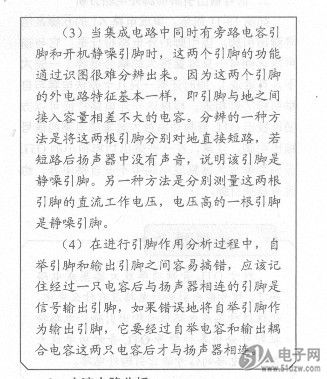 （3）当集成电路中同时有旁路电容引
脚和开机静噪引脚时，这两个引脚的功能
通过识图很难分辨出来。因为这两个引脚
的外电路特征基本一样，即引脚与地之间
接入容量相差不大的电容。分辨的一种方
法是将这两根引脚分别对地直接短路，若
短路后扬声器中没有声音，说明该引脚是
静噪引脚。另一种方法是分别测量这两根
引脚的直流工作电压，电压高的一根引脚
是静噪引脚。
（4）在进行引脚作用分析过程中，自
举引脚和输出引脚之间容易搞错，应该记
住经过一只电容后与扬声器相连的引脚是
信号输出引脚，如果错误地将自举引脚作
为输出引脚，它要经过自举电容和输出耦
合电容这两只电容后才与扬声器相连。
电子网
www.51dzw.com